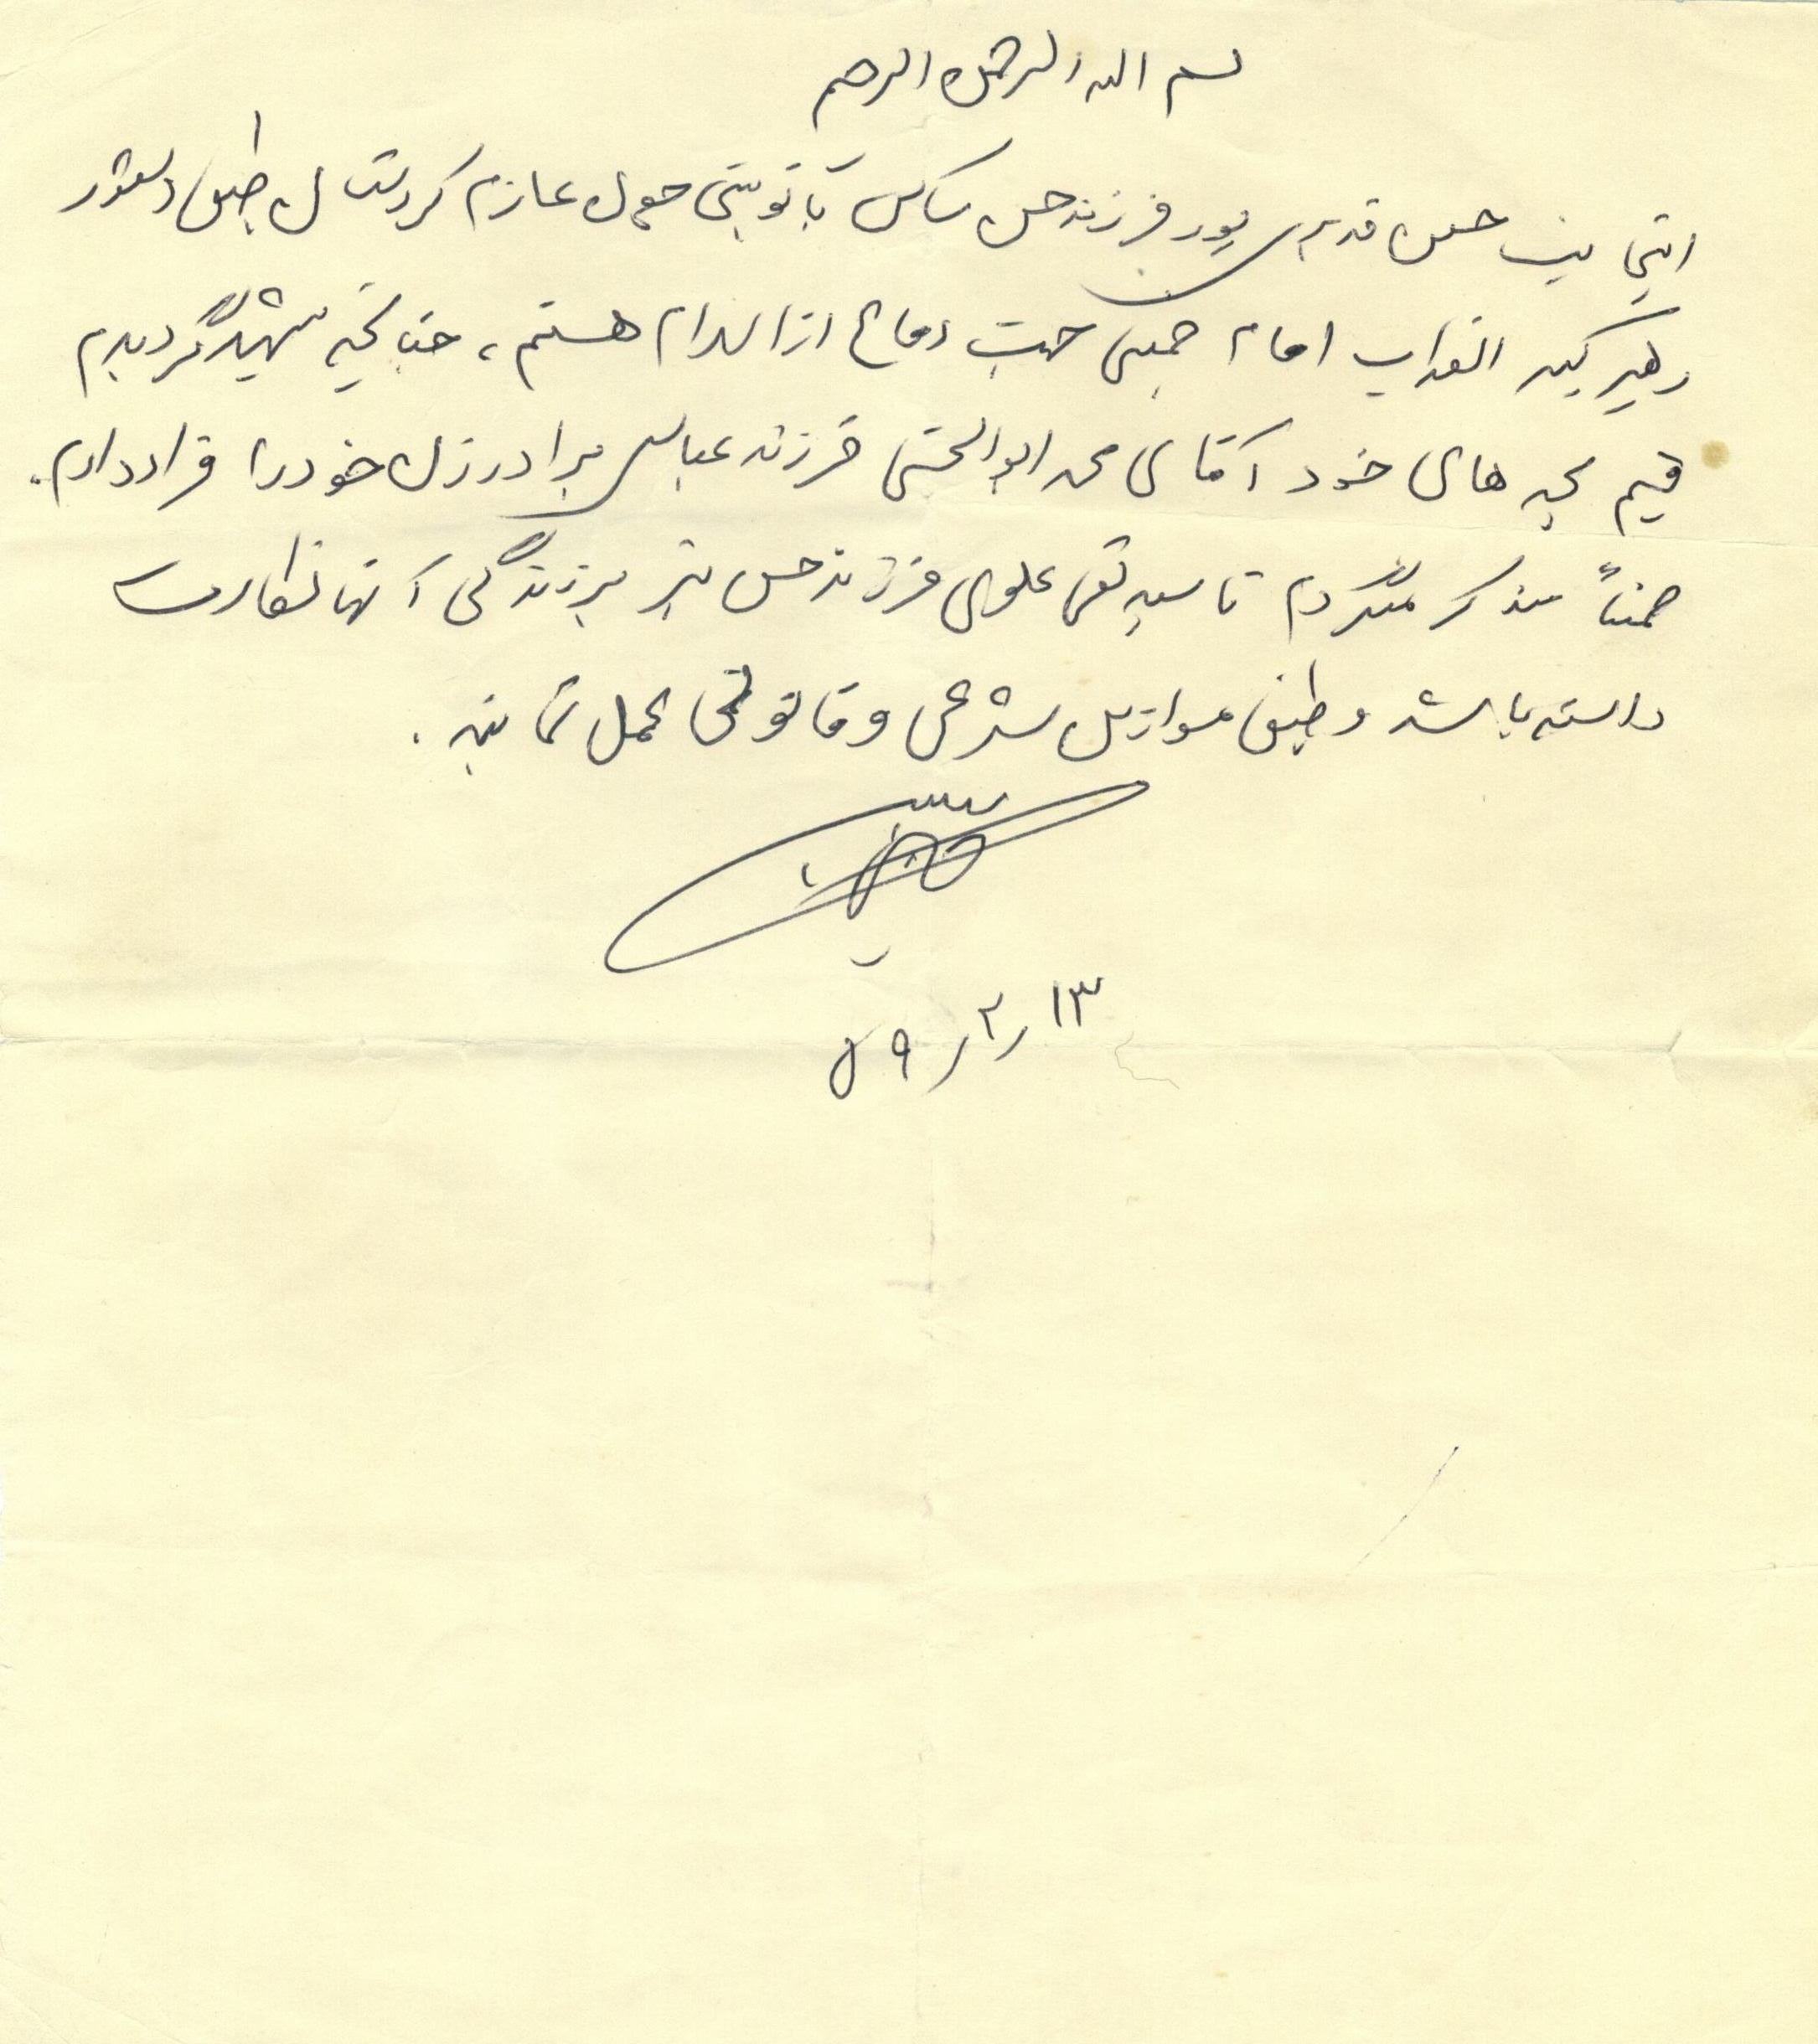 بسم الله الرحمن الرحیم
اینجانب حسن قدیری پور فرزند حسن ساکن عازم کردستان طبق دستور
رهبر کبیر انقلاب امام خمینی جهت دفاع از اسلام هستم، چنانچه شهید گردیدم
قیم بچه های خود آقای محمد ابوالحسنی فرزند عباس برادر زن خود را قرار دادم.
ضمناً متذکر میگردم تا سید تقی علوی فرزند حسن نیز بر زندگی آنها نظارت
داشته باشد و طبق موازین شرعی و قانونی عمل نمایند.
۱۳/۲/۵۹